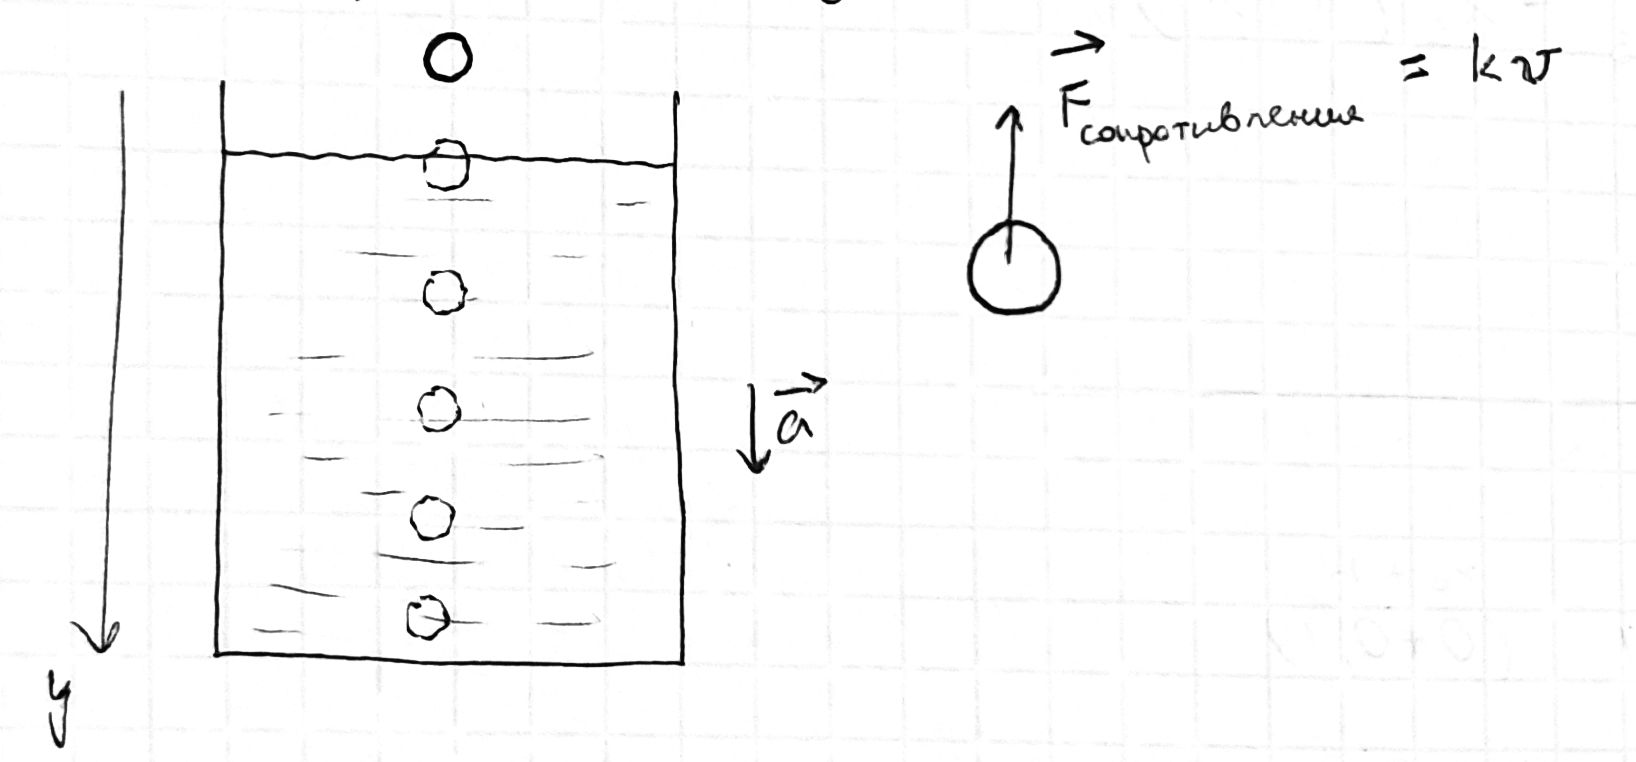 F⃗сопротивления = kv
a⃗
y